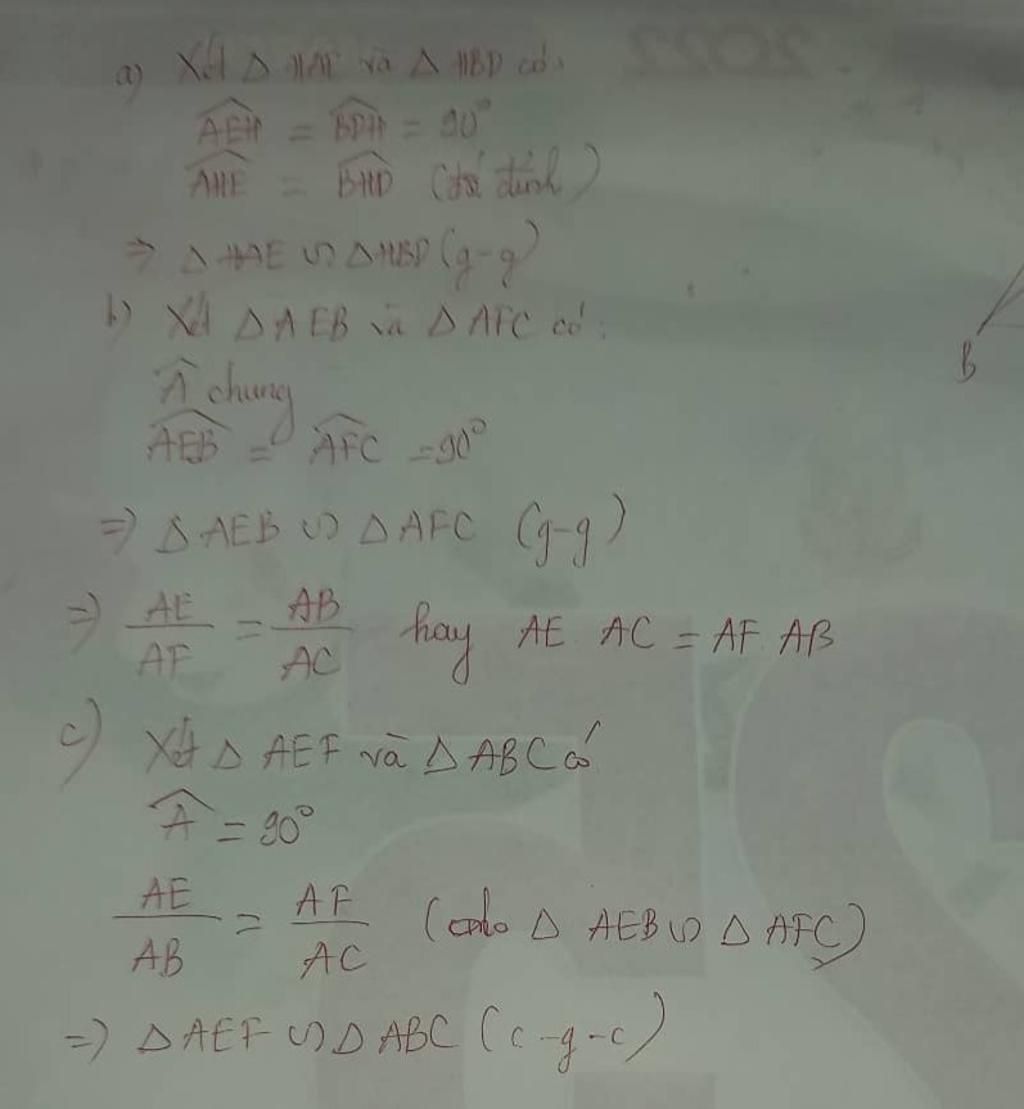 a) Xét Δ HAE và Δ HBD có:
AEH = BDH = 90°
AHE = BHD (đối đỉnh)
=> Δ HAE ∽ Δ HBD (g-g)
b) Xét Δ AEB và Δ AFC có:
Â chung
AEB = AFC = 90°
=> Δ AEB ∽ Δ AFC (g-g)
=> AE/AF = AB/AC hay AE. AC = AF. AB
c) Xét Δ AEF và Δ ABC có
Â = 90°
AE/AB = AF/AC (Δ AEB ∽ Δ AFC)
=> Δ AEF ∽ Δ ABC (c-g-c)
B
2022